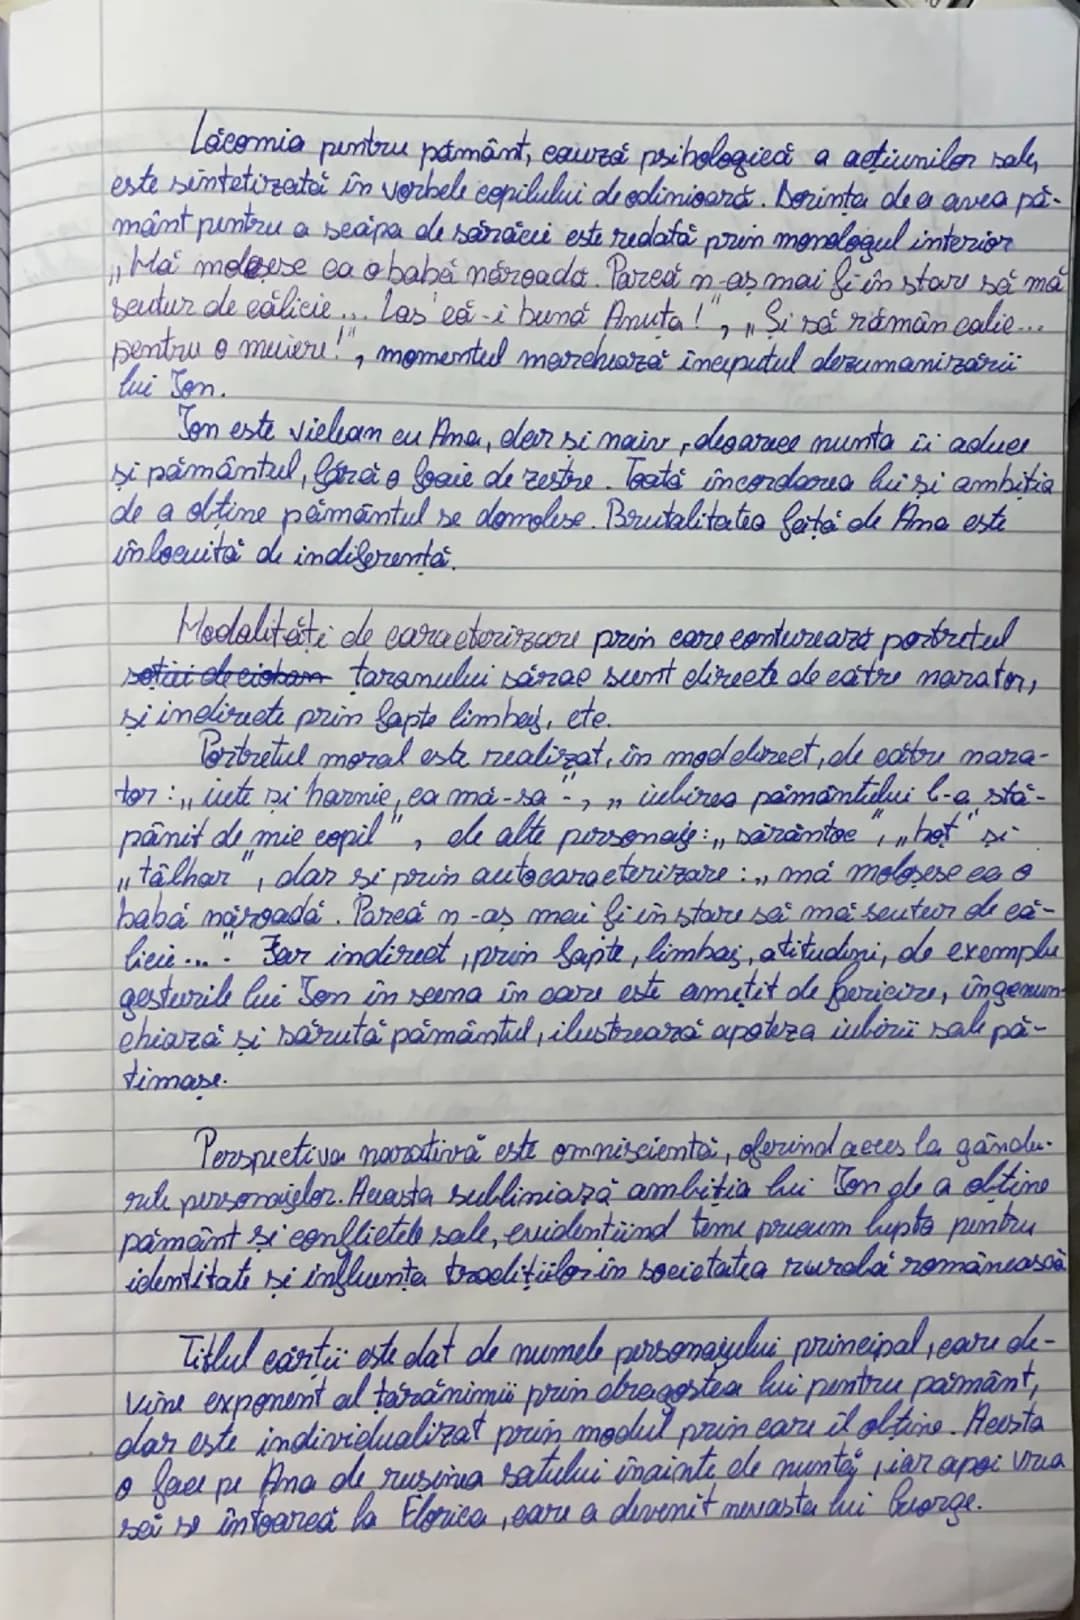 Lăcomia pentru pământ, cauză psihologică a acțiunilor sale,
este sintetizată în vorbele copilului de odinioară. Dorința de a avea pă-
mânt pentru a scăpa de sărăcie este redată prin monologul interior
„Mă moleșesc ca o babă năroadă. Parcă n-aș mai fi în stare să mă
scutur de călicie... Las că-i bună Anuța!", „Și să rămân calic...
pentru o muiere!", momentul marchează începutul dezumanizării
lui Ion.
Ion este viclean cu Ana, dar și naiv, deoarece nunta îi aduce
și pământul, fără o foaie de zestre. Toată încordarea lui și ambiția
de a obține pământul se domolesc. Brutalitatea față de Ana este
înlocuită de indiferență.
Modalități de caracterizare prin care conturează portretul
soției de cioban taranului sărac sunt directe de către narator,
și indirecte prin fapte limbaj, etc.
Portretul moral este realizat, în mod direct, de către nara-
tor: „iute și harnic, ca mă-sa", „iubirea pământului l-a stă-
pânit de mic copil", de alte personaje: „sărăntoc", „hoț" și
„tâlhar", dar și prin autocaracterizare: „mă moleșesc ca o
babă năroadă. Parcă n-aș mai fi în stare să mă scutur de că-
licie...". Iar indirect, prin fapte, limbaj, atitudini, de exemplu
gesturile lui Ion în scena în care este amețit de fericire, îngenun-
chiază și sărută pământul, ilustrează apoteza iubirii sale pă-
timașe.
Perspectiva narativă este omniscientă, oferind acces la gându-
rile personajelor. Aceasta subliniază ambiția lui Ion de a obține
pământ și conflictele sale, evidențiind teme precum lupta pentru
identitate și influența tradițiilor în societatea rurală românească
Titlul cărții este dat de numele personajului principal, care de-
vine exponent al țărănimii prin dragostea lui pentru pământ,
dar este individualizat prin modul prin care îl obține. Acesta
o face pe Ana de rușinea satului înainte de nuntă, iar apoi vrea
să se întoarcă la Florica, care a devenit nevasta lui George.